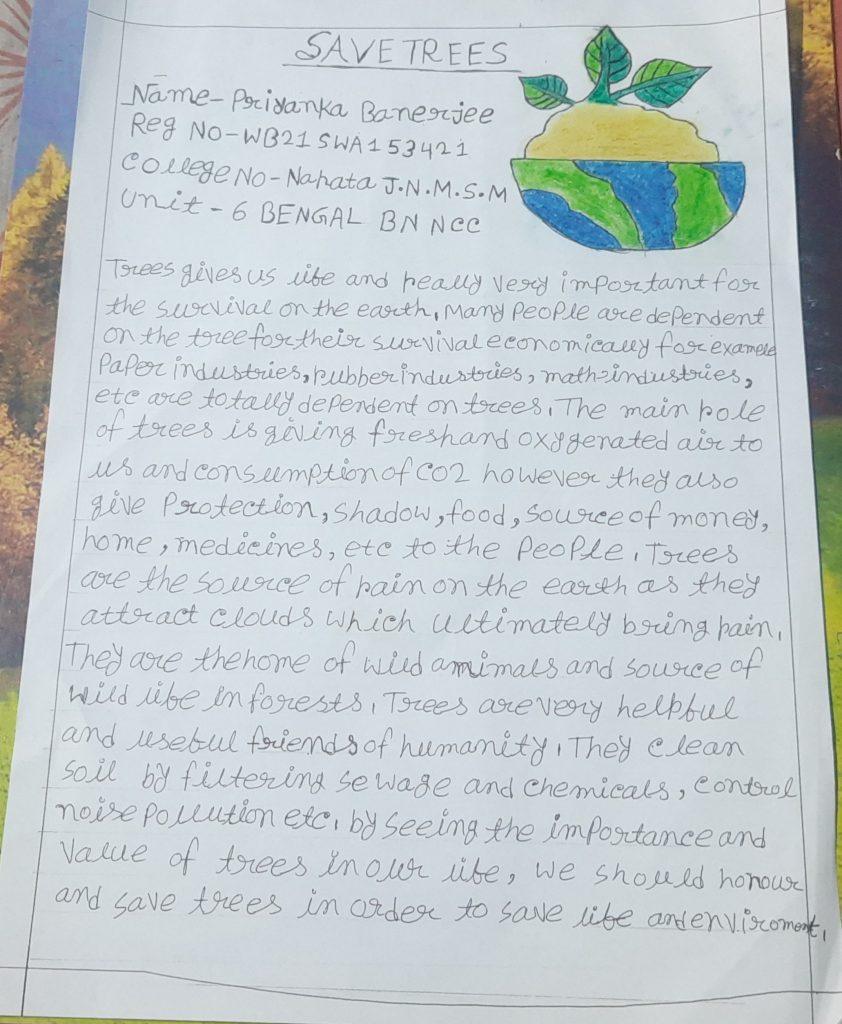 SAVE TREES
Name- Priyanka Banerjee
Reg No-WB21SWA153421
College No-Nahata J.N.M.S.M
Unit - 6 BENGAL BN NCC
Trees gives us life and really very important for
the survival on the earth, Many People are dependent
on the tree for their survival economically for example
Paper industries, rubber industries, math industries,
etc are totally dependent on trees. The main role
of trees is giving fresh and oxygenated air to
us and consumption of CO2 however they also
give Protection, shadow, food, source of money,
home, medicines, etc to the People. Trees
are the source of rain on the earth as they
attract clouds which ultimately bring rain.
They are the home of wild amimals and source of
wild life in forests. Trees are very helpful
and useful friends of humanity. They clean
soil by filtering sewage and chemicals, control
noise pollution etc. by seeing the importance and
value of trees in our life, we should honour
and save trees in order to save life and enviroment.